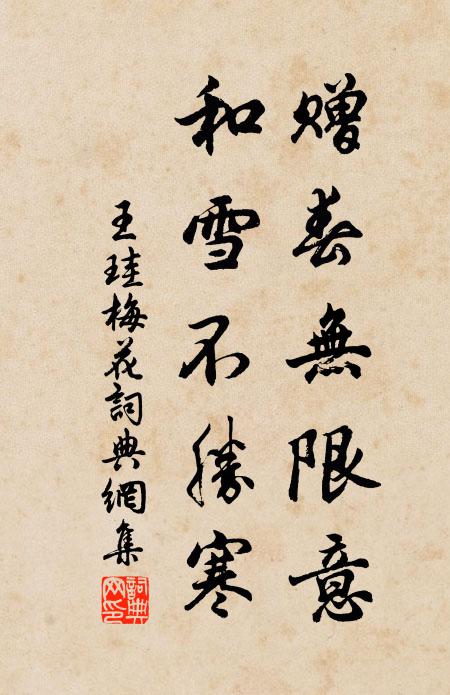 赠春無限意
和雪不勝寒
王珪梅花詞典網集
詞典
网印